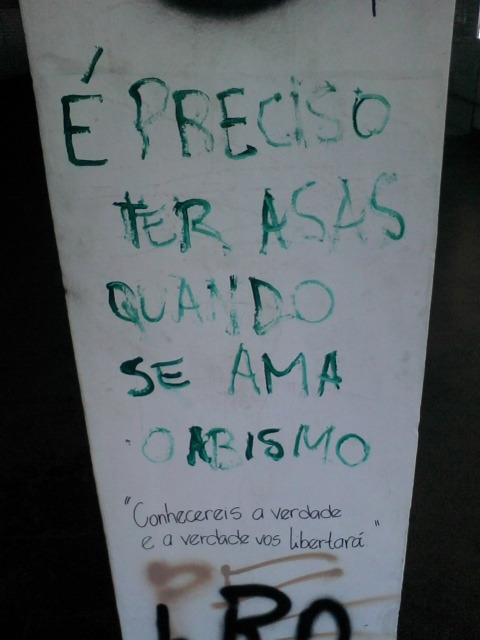 É PRECISO
TER ASAS
QUANDO
SE AMA
O ABISMO
"Conhecereis a verdade
e a verdade vos libertará"